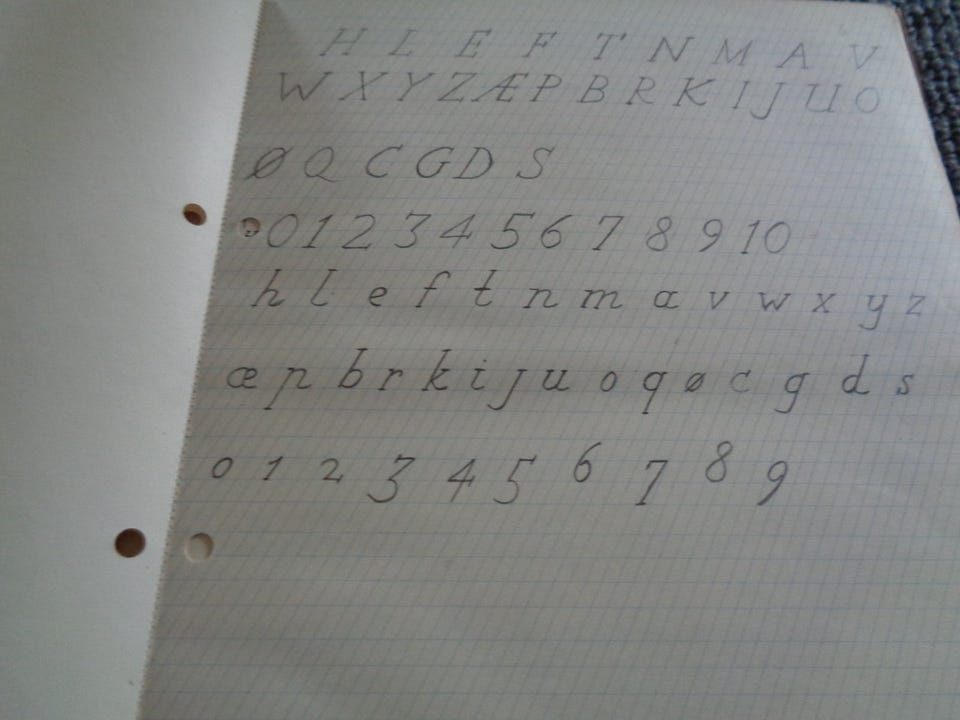 H L E F T N M A V
W X Y Z Æ P B R K I J U O
Ø Q C G D S
0 1 2 3 4 5 6 7 8 9 10
h l e f t n m a v w x y z
æ p b r k i j u o q ø c g d s
0 1 2 3 4 5 6 7 8 9